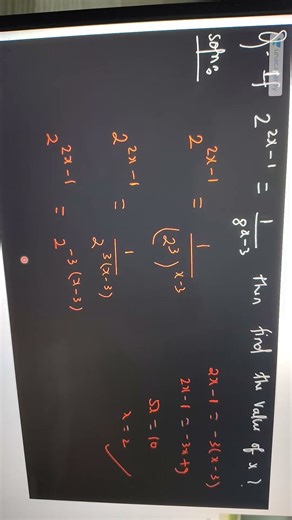 Q- If 2^{2x-1} = \frac{1}{8^{x-3}} then find the value of x?
Soln:
2^{2x-1} = \frac{1}{(2^3)^{x-3}}
2^{2x-1} = \frac{1}{2^{3(x-3)}}
2^{2x-1} = 2^{-3(x-3)}
2x-1 = -3(x-3)
2x-1 = -3x+9
5x = 10
x = 2